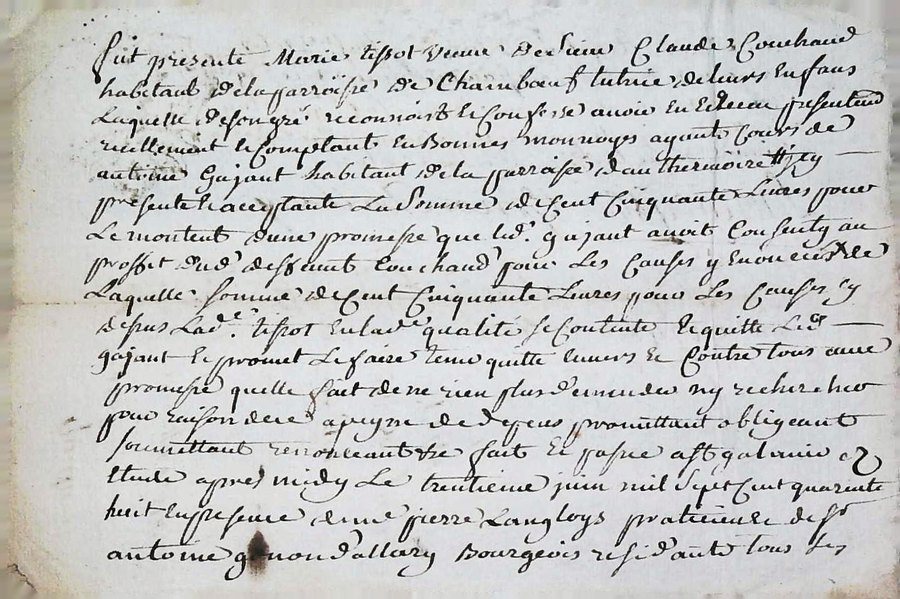 fut presente Marie tissot veuve de sieur Claude Couchaud
habitant de la parroisse de Chambœuf tutrice de leurs enfans
Laquelle de son gré reconnoist et Confesse avoir eu et Receu presentem
reellement et Comptant En Bonnes monnoyes ayants Cours de
antoine Gajant habitant de la parroisse d'authermoire
presente et acceptante La somme de Cent Cinquante Livres pour
Le montent d'une promesse que led. gajant avoit Consenty au
proffit dud deffeunt Couchaud pour Les Causes y enoncées De
Laquelle somme de Cent Cinquante Livres pour Les Causes cy
depus Lad.e tissot en lad.e qualité se Contente et quitte Led
gajant et promet Le faire tenir quitte envers et Contre tous avec
promesse quelle fait de ne rien plus demender ny rechercher
pour raison de ce a peyne de depens promettant obligeant
soumettant renonceant &e fait et passé a st galmier
Etude apres midy Le trentieme juin mil sept Cent quarente
huit en presence de me pierre Langloys praticien et de sr
antoine genon d'allary Bourgeois residants tous Les